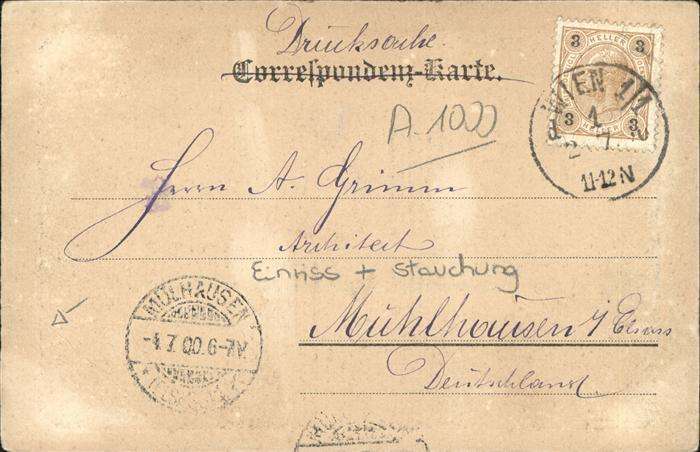 Drucksache.
Correspondenz-Karte.
3 HELLER 3
3 3
WIEN 1/1
1
2 7
11-12 N
A. 1000
Herrn A. Grimm
Architect
Einriss + Stauchung
MÜLHAUSEN
-4.7.00.6-7N
Mühlhausen i/ Elsass
Deutschland